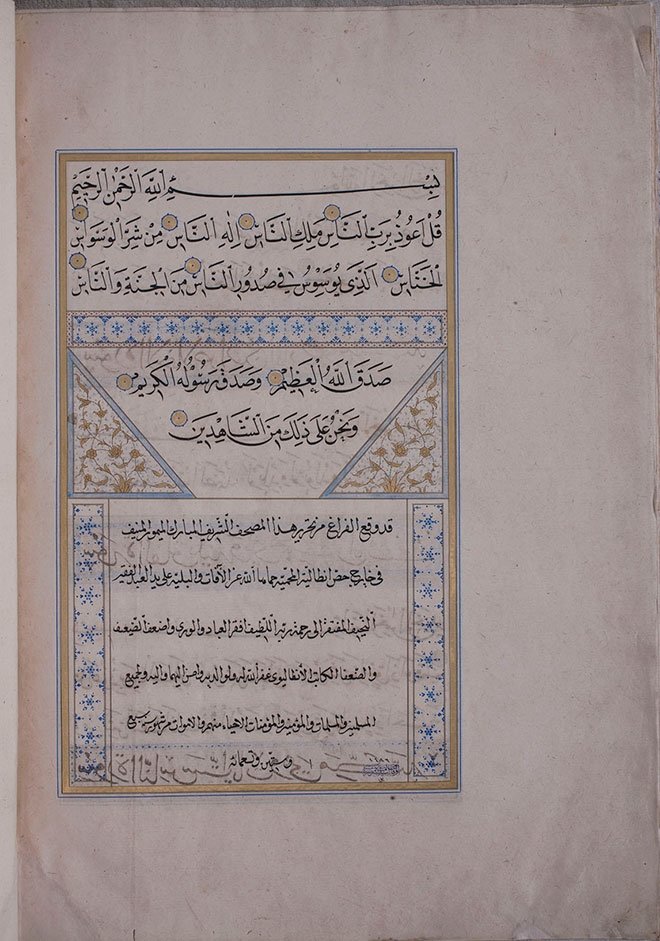 بِسْمِ اللّٰهِ الرَّحْمٰنِ الرَّحِيْمِ
قُلْ اَعُوذُ بِرَبِّ النَّاسِ مَلِكِ النَّاسِ اِلٰهِ النَّاسِ مِنْ شَرِّ الْوَسْوَاسِ
الْخَنَّاسِ الَّذِي يُوَسْوِسُ فِي صُدُورِ النَّاسِ مِنَ الْجِنَّةِ وَالنَّاسِ
صَدَقَ اللّٰهُ الْعَظِيْمُ وَصَدَقَ رَسُولُهُ الْكَرِيْمُ
وَنَحْنُ عَلَى ذٰلِكَ مِنَ الشَّاهِدِيْنَ
قد وقع الفراغ من تحرير هذا المصحف الشريف المبارك الميمون المنيف
في خارج حصن انطالية المحمية حماها الله عن الآفات والبلية على يد العبد الفقير
النحيف المفتقر الى رحمة ربه اللطيف افقر العباد والورى واضعف الضعفا
الكاتب الأنطاليوى غفر الله له ولوالديه واحسن اليهما واليه ولجميع
المسلمين والمسلمات والمؤمنين والمؤمنات الاحياء منهم والاموات من شهور سنه سبع
وسبعين وثمانمائة